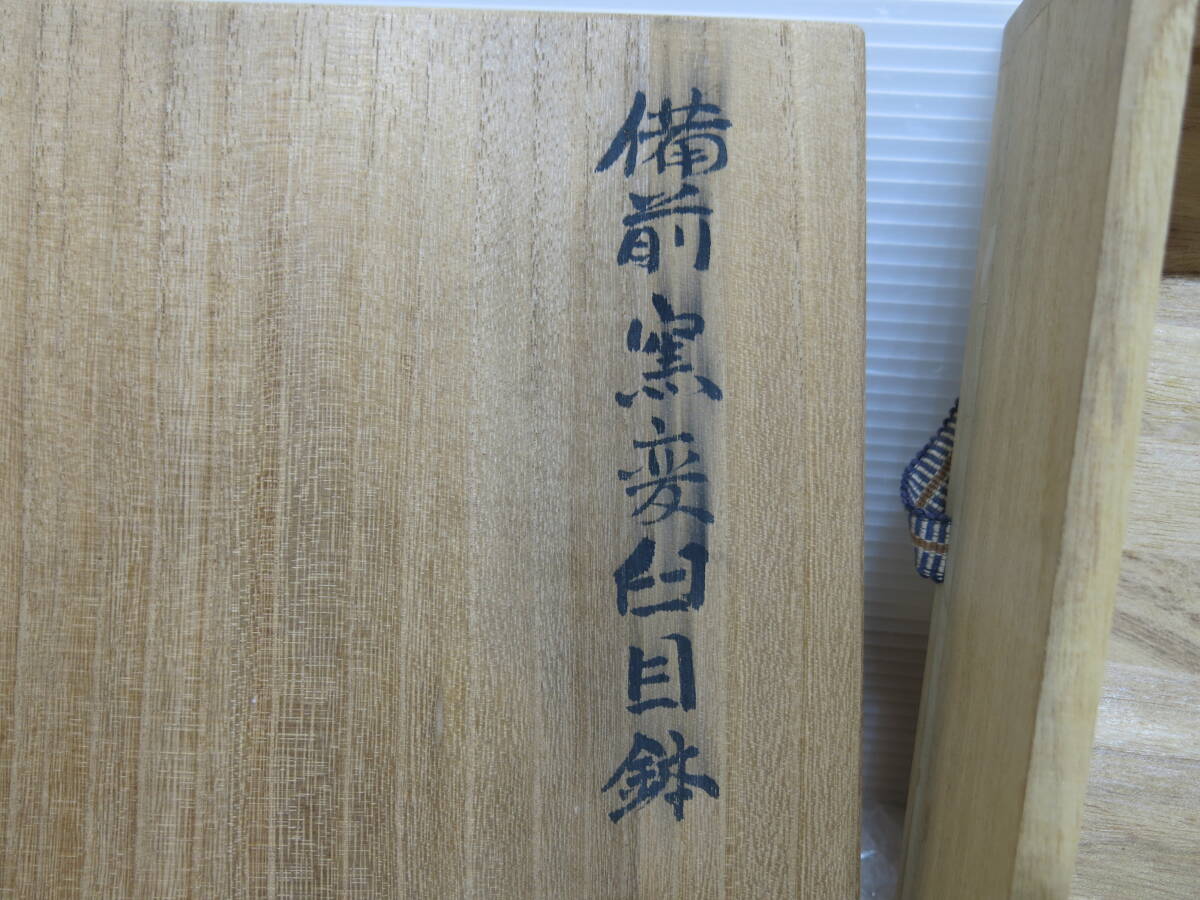 備前窯変臼目鉢